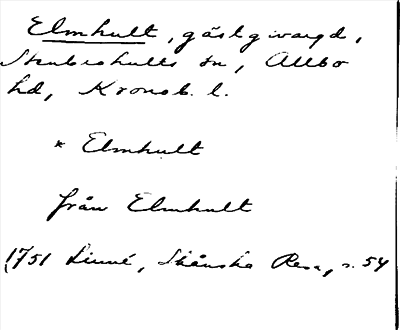 Elmhult, gästgivargd,
Stenbrohults sn, Allbo
hd, Kronob. l.
* Elmhult
från Elmhult
(1751 Linné, Skånska Resa, s. 54